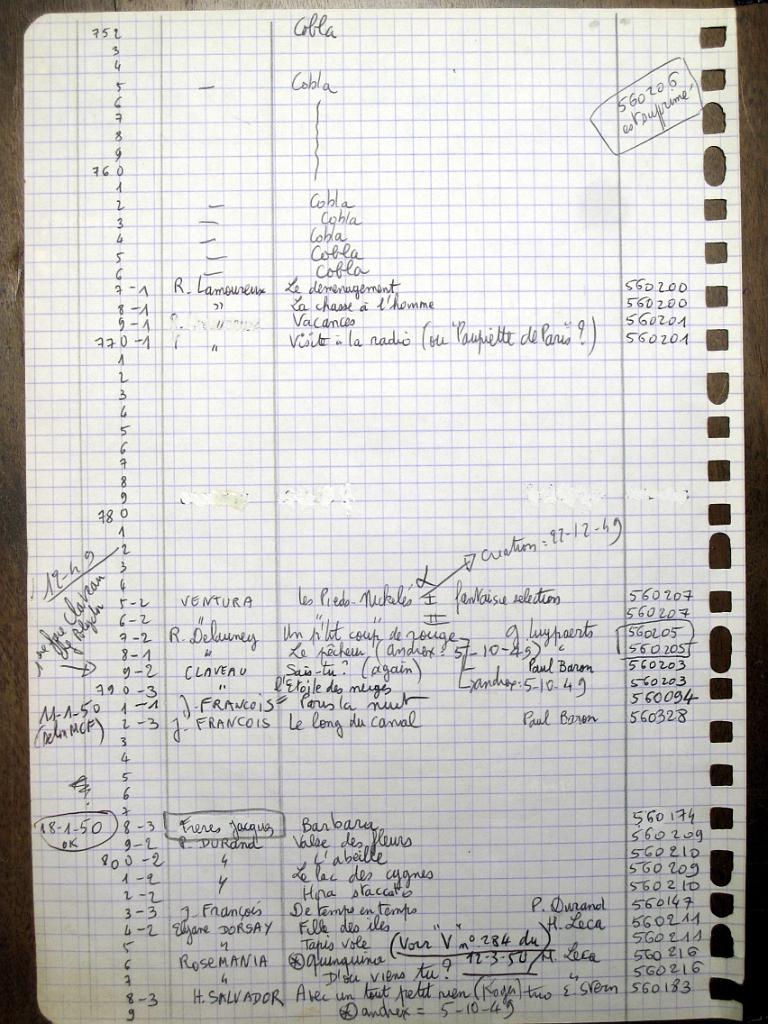 752 Cobla
3
4
5 — Cobla
560206
est supprimé
6
7
8
9
760
1
2 — Cobla
3 — Cobla
4 — Cobla
5 — Cobla
6 — Cobla
7-1 R. Lamoureux Le déménagement 560200
8-1 " La chasse à l'homme 560200
9-1 " Vacances 560201
770-1 " Visite à la radio (ou "Paupiette de Paris"?) 560201
1
2
3
4
5
6
7
8
9
780
1
2
3 Création: 22-12-49
4
5-2 VENTURA Les Pieds-Nickelés I fantaisie selection 560207
6-2 II 560207
7-2 R. Delauney Un p'tit coup de rouge g. luypaerts 560205
8-1 " Le pêcheur (andrex: 5-10-49) " 560205
9-2 CLAVEAU Sais-tu? (again) Paul Baron 560203
790-3 " l'Etoile des neiges andrex: 5-10-49 560203
11-1-50
1-1 J. FRANCOIS Paris la nuit 560094
2-3 J. FRANCOIS Le long du canal Paul Baron 560328
3
4
5
6
7
18-1-50
OK
8-3 Frères Jacques Barbara 560174
9-2 P. DURAND Valse des fleurs 560209
800-2 " L'abeille 560210
1-2 " Le lac des cygnes 560209
2-2 Hora staccato 560210
3-3 J. François De temps en temps P. Durand 560147
4-2 Elyane DORSAY Fille des îles H. Leca 560211
5 " Tapis volé (Voir "V" n° 284 du 12-3-50) 560211
6 ROSEMANIA Quinquina H. Leca 560216
7 " D'où viens tu? " 560216
8-3 H. SALVADOR Avec un tout petit rien (Roger) trio E. Stern 560183
9 andrex = 5-10-49